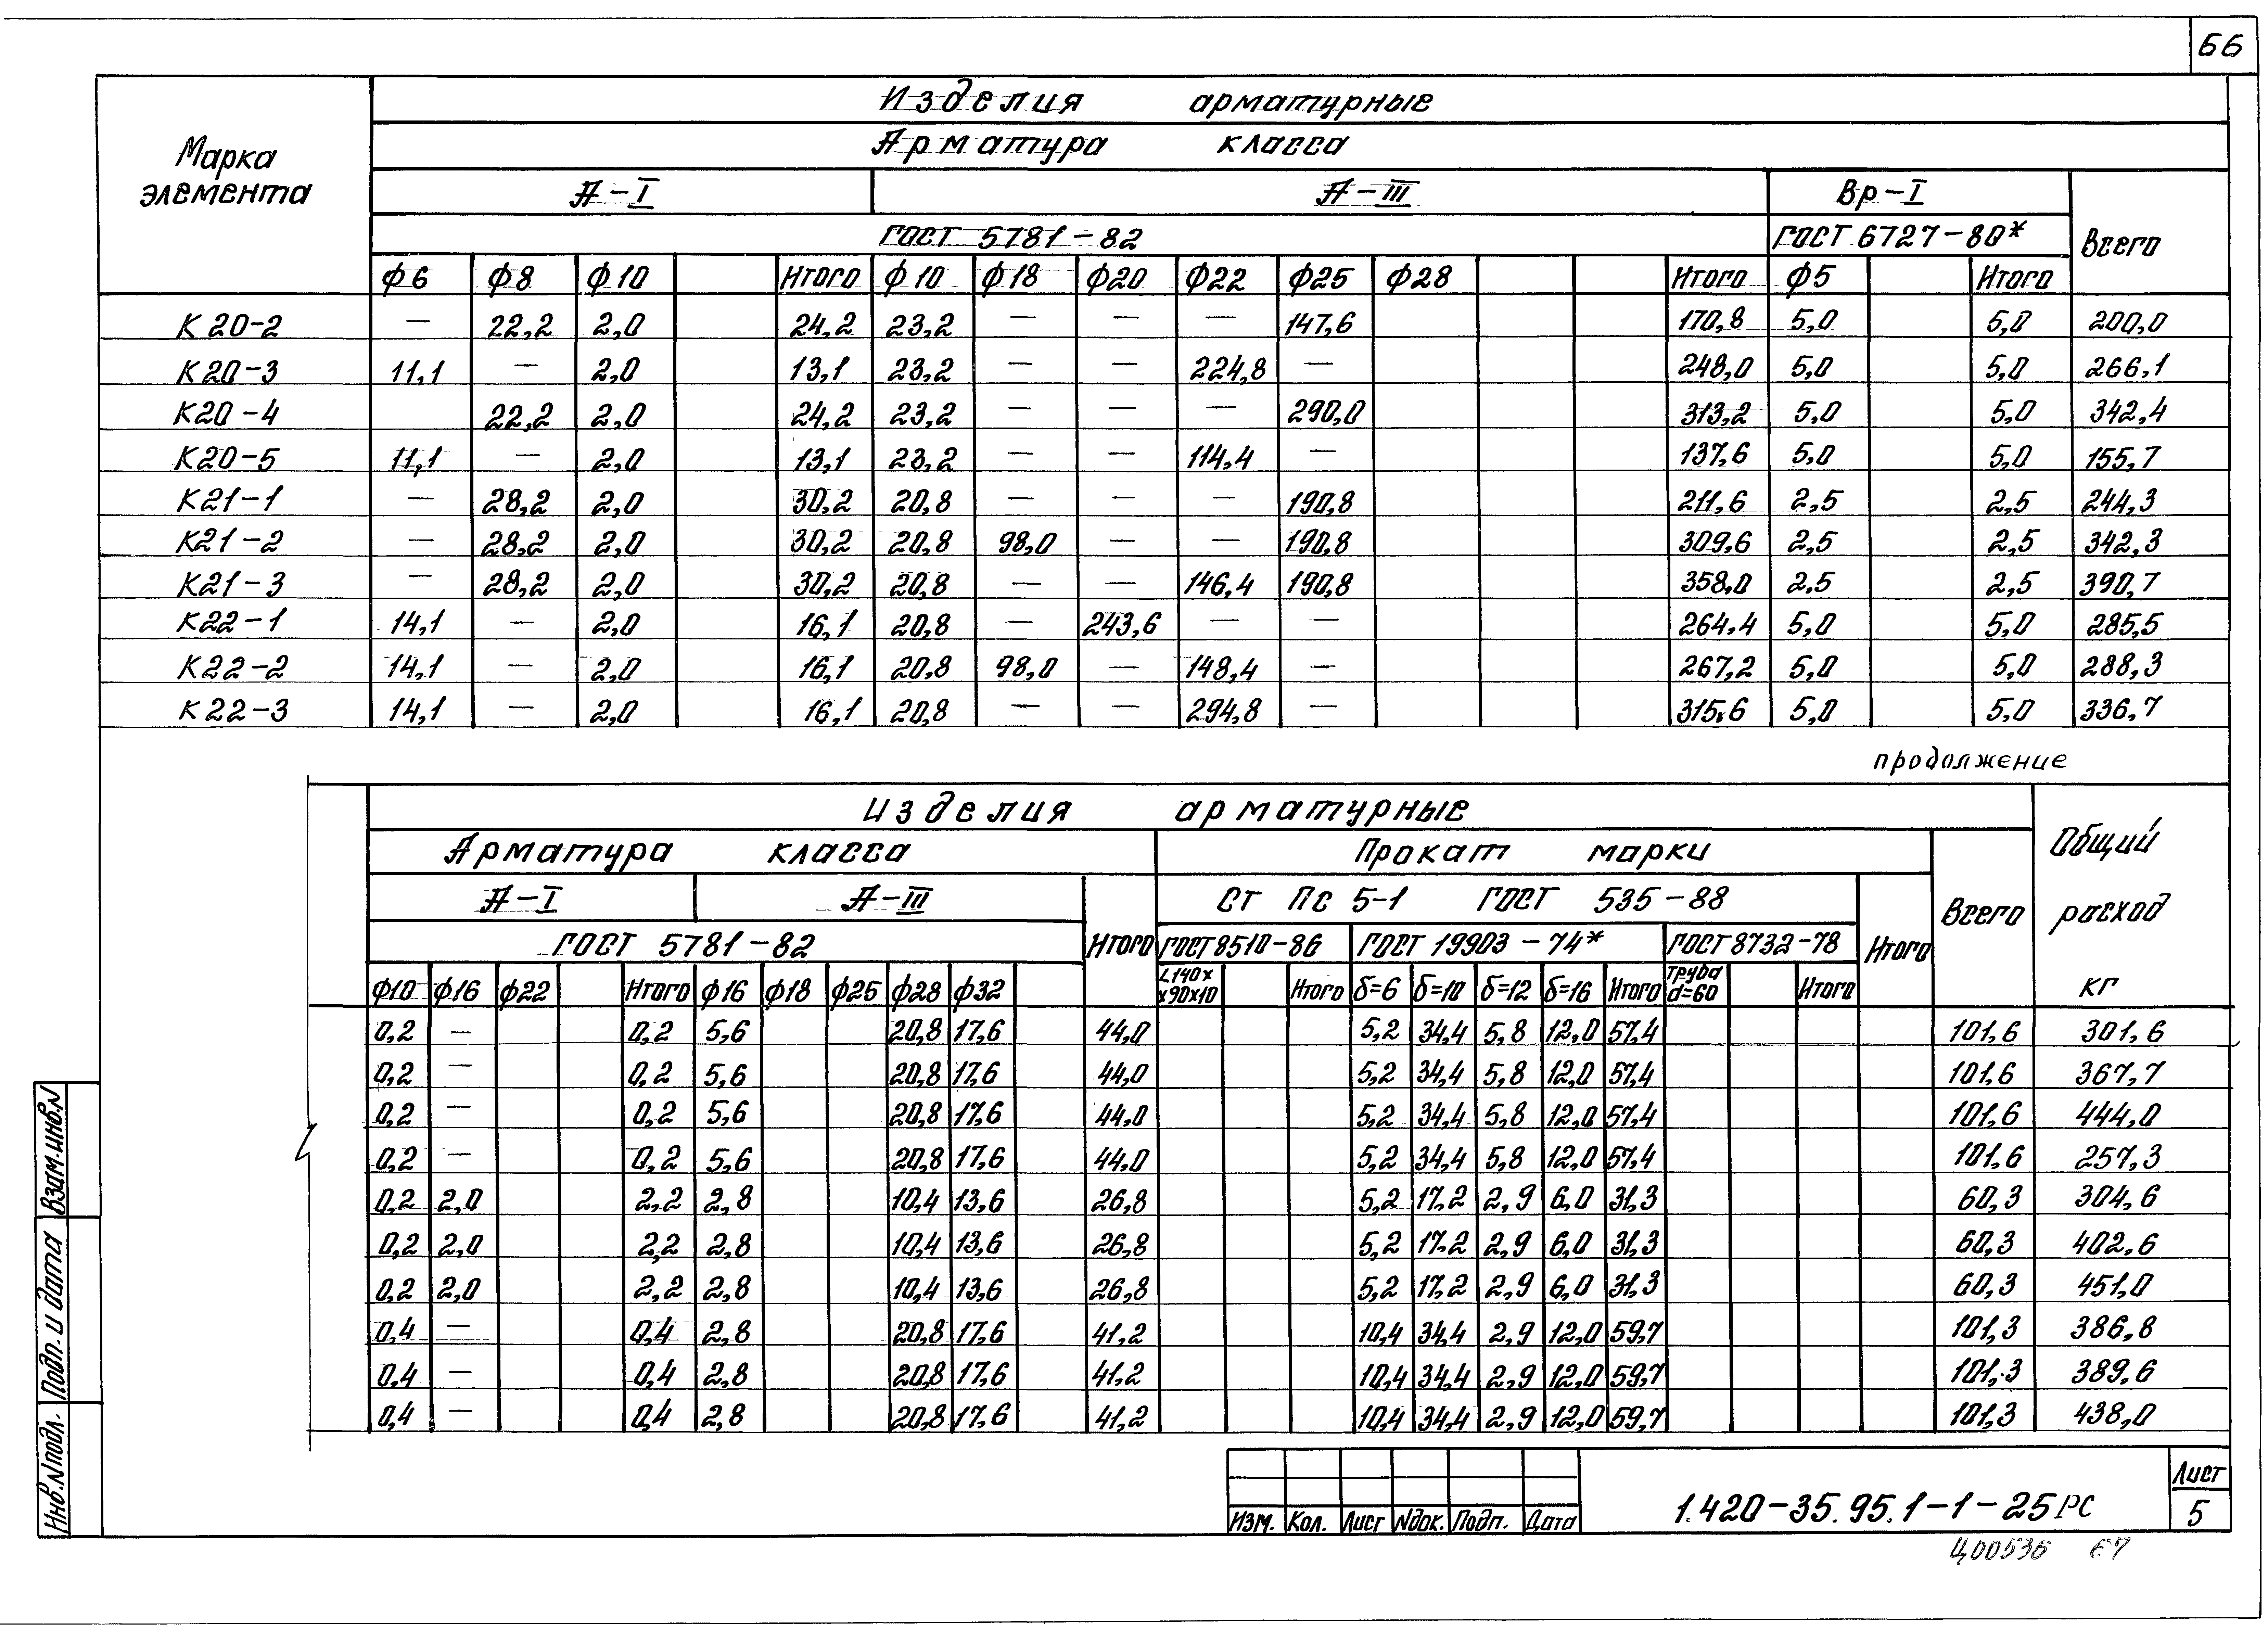 66
Изделия арматурные
Марка элемента
Арматура класса
А-I А-III Вр-I Всего
ГОСТ 5781-82 ГОСТ 6727-80*
ф6 ф8 ф10 Итого ф10 ф18 ф20 ф22 ф25 ф28 Итого ф5 Итого
К20-2 — 22,2 2,0 24,2 23,2 — — — 147,6 170,8 5,0 5,0 200,0
К20-3 11,1 — 2,0 13,1 23,2 — — 224,8 — 248,0 5,0 5,0 266,1
К20-4 22,2 2,0 24,2 23,2 — — — 290,0 313,2 5,0 5,0 342,4
К20-5 11,1 — 2,0 13,1 23,2 — — 114,4 — 137,6 5,0 5,0 155,7
К21-1 — 28,2 2,0 30,2 20,8 — — — 190,8 211,6 2,5 2,5 244,3
К21-2 — 28,2 2,0 30,2 20,8 98,0 — — 190,8 309,6 2,5 2,5 342,3
К21-3 — 28,2 2,0 30,2 20,8 — — 146,4 190,8 358,0 2,5 2,5 390,7
К22-1 14,1 — 2,0 16,1 20,8 — 243,6 — — 264,4 5,0 5,0 285,5
К22-2 14,1 — 2,0 16,1 20,8 98,0 — 148,4 — 267,2 5,0 5,0 288,3
К22-3 14,1 — 2,0 16,1 20,8 — — 294,8 — 315,6 5,0 5,0 336,7
продолжение
Изделия арматурные Общий расход кг
Арматура класса Прокат марки Всего
А-I А-III Итого Ст Пс 5-1 ГОСТ 535-88 Итого
ГОСТ 5781-82 ГОСТ 8510-86 ГОСТ 19903-74* ГОСТ 8732-78
ф10 ф16 ф22 Итого ф16 ф18 ф25 ф28 ф32 L140х х90х10 Итого δ=6 δ=10 δ=12 δ=16 Итого труба d=60 Итого
0,2 — 0,2 5,6 20,8 17,6 44,0 5,2 34,4 5,8 12,0 57,4 101,6 301,6
0,2 — 0,2 5,6 20,8 17,6 44,0 5,2 34,4 5,8 12,0 57,4 101,6 367,7
0,2 — 0,2 5,6 20,8 17,6 44,0 5,2 34,4 5,8 12,0 57,4 101,6 444,0
0,2 — 0,2 5,6 20,8 17,6 44,0 5,2 34,4 5,8 12,0 57,4 101,6 257,3
0,2 2,0 2,2 2,8 10,4 13,6 26,8 5,2 17,2 2,9 6,0 31,3 60,3 304,6
0,2 2,0 2,2 2,8 10,4 13,6 26,8 5,2 17,2 2,9 6,0 31,3 60,3 402,6
0,2 2,0 2,2 2,8 10,4 13,6 26,8 5,2 17,2 2,9 6,0 31,3 60,3 451,0
0,4 — 0,4 2,8 20,8 17,6 41,2 10,4 34,4 2,9 12,0 59,7 101,3 386,8
0,4 — 0,4 2,8 20,8 17,6 41,2 10,4 34,4 2,9 12,0 59,7 101,3 389,6
0,4 — 0,4 2,8 20,8 17,6 41,2 10,4 34,4 2,9 12,0 59,7 101,3 438,0
Взам.инв.N
Подп. и дата
Инв.Nподл.
Изм. Кол. Лист Nдок. Подп. Дата
1.420-35.95.1-1-25РС
Лист
5
Ц00536 67